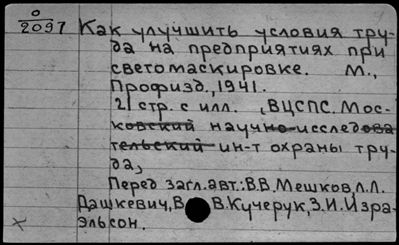 0
2097
Как улучшить условия тру-
да на предприятиях при
светомаскировке. М.,
Профизд., 1941.
21 стр. с илл. (ВЦСПС. Мос-
ковский научно-исследова
тельский ин-т охраны тру-
да)
Перед загл. авт.: В.В. Мешков, Л.Л.
Дашкевич, В В. Кучерук, З.И. Изра-
эльсон.